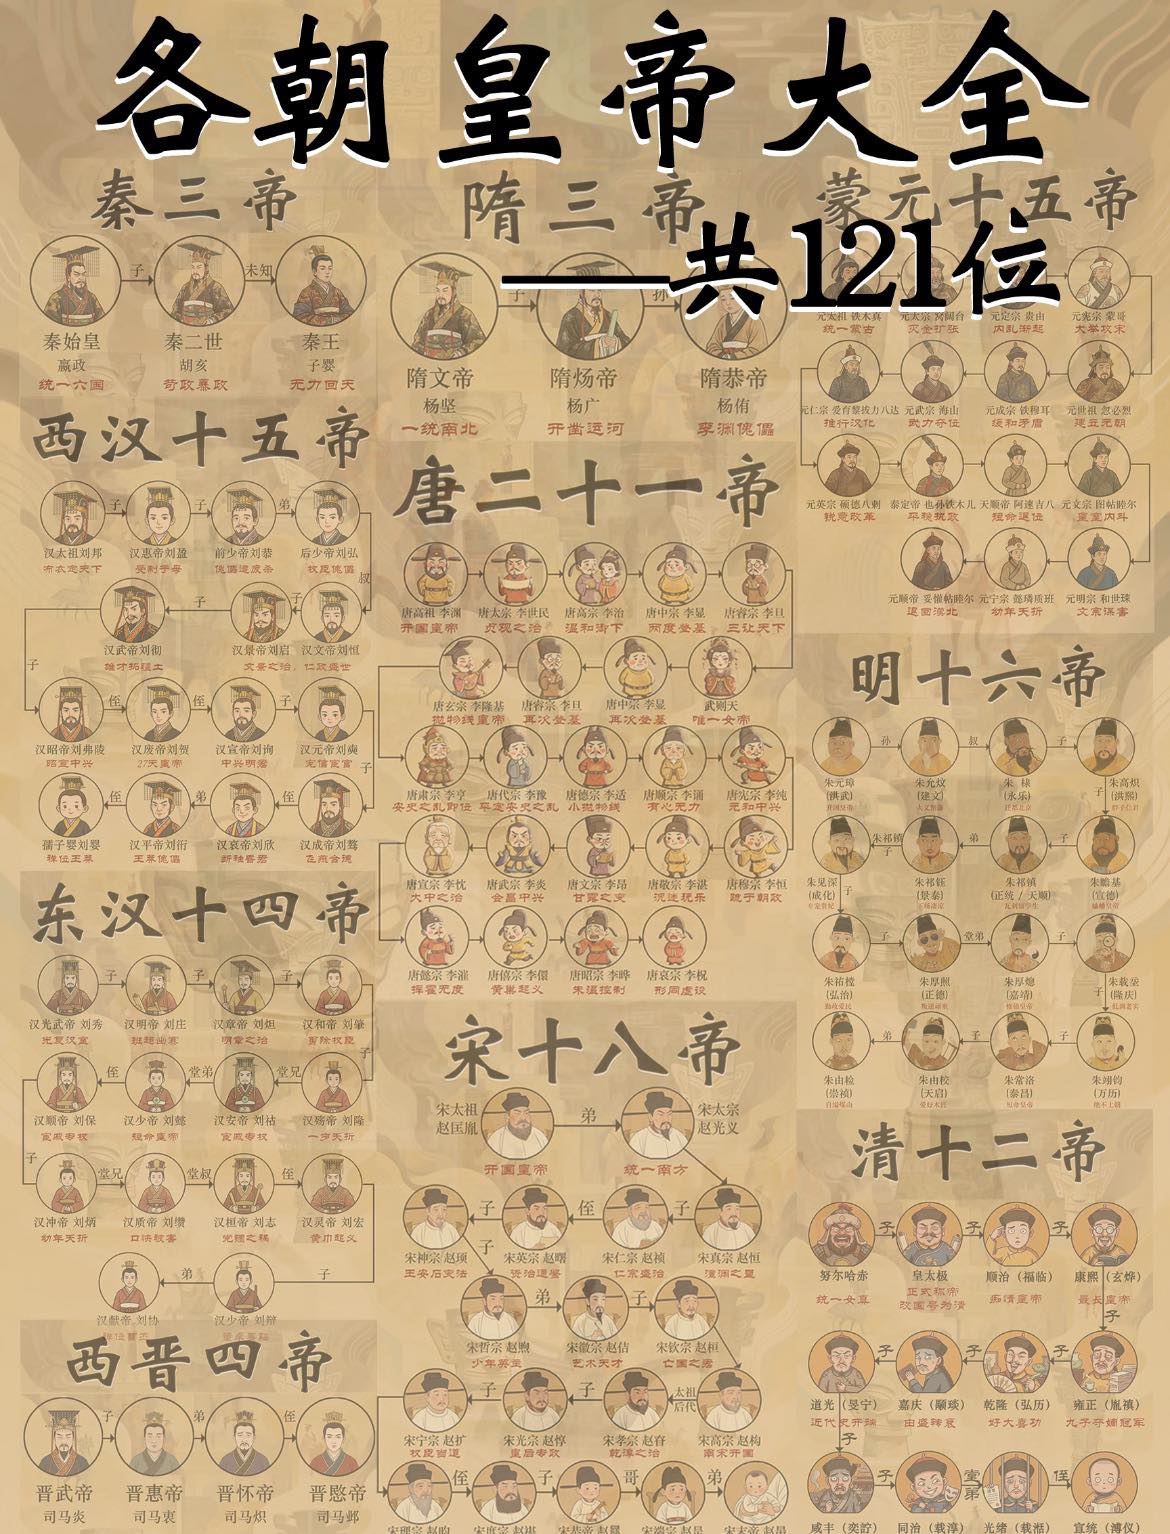 各朝皇帝大全
——共121位
秦三帝
子
未知
秦始皇
秦二世
秦王
嬴政
胡亥
子婴
统一六国
苛政暴政
无力回天
西汉十五帝
子
子
弟
汉太祖刘邦
汉惠帝刘盈
前少帝刘恭
后少帝刘弘
布衣定天下
受制于母
傀儡遭废杀
权臣傀儡
叔
子
子
汉武帝刘彻
汉景帝刘启
汉文帝刘恒
雄才拓疆土
文景之治
仁政盛世
子
侄
侄
子
汉昭帝刘弗陵
汉废帝刘贺
汉宣帝刘询
汉元帝刘奭
昭宣中兴
27天皇帝
中兴明君
宠信宦官
子
侄
弟
侄
孺子婴刘婴
汉平帝刘衎
汉哀帝刘欣
汉成帝刘骜
禅位王莽
王莽傀儡
断袖昏君
飞燕合德
东汉十四帝
子
子
子
汉光武帝 刘秀
汉明帝 刘庄
汉章帝 刘炟
汉和帝 刘肇
光复汉室
班超出塞
明章之治
剪除权臣
子
侄
堂弟
堂兄
汉顺帝 刘保
汉少帝 刘懿
汉安帝 刘祜
汉殇帝 刘隆
宦戚专权
短命皇帝
宦戚专权
一岁夭折
子
堂兄
堂叔
侄
汉冲帝 刘炳
汉质帝 刘缵
汉桓帝 刘志
汉灵帝 刘宏
幼年夭折
口快被害
党锢之祸
黄巾起义
弟
子
汉献帝 刘协
汉少帝 刘辩
西晋四帝
子
弟
侄
晋武帝
晋惠帝
晋怀帝
晋愍帝
司马炎
司马衷
司马炽
司马邺
隋三帝
子
孙
隋文帝
隋炀帝
隋恭帝
杨坚
杨广
杨侑
一统南北
开凿运河
李渊傀儡
唐二十一帝
唐高祖 李渊
唐太宗 李世民
唐高宗 李治
唐中宗 李显
唐睿宗 李旦
开国皇帝
贞观之治
温和御下
两度登基
三让天下
唐玄宗 李隆基
唐睿宗 李旦
唐中宗 李显
武则天
抛物线皇帝
再次登基
再次登基
唯一女帝
唐肃宗 李亨
唐代宗 李豫
唐德宗 李适
唐顺宗 李诵
唐宪宗 李纯
安史之乱即位
平定安史之乱
小抛物线
有心无力
元和中兴
唐宣宗 李忱
唐武宗 李炎
唐文宗 李昂
唐敬宗 李湛
唐穆宗 李恒
大中之治
会昌中兴
甘露之变
沉迷玩乐
疏于朝政
唐懿宗 李漼
唐僖宗 李儇
唐昭宗 李晔
唐哀宗 李柷
挥霍无度
黄巢起义
朱温控制
形同虚设
宋十八帝
宋太祖
赵匡胤
弟
宋太宗
赵光义
开国皇帝
统一南方
子
侄
子
宋神宗 赵顼
宋英宗 赵曙
宋仁宗 赵祯
宋真宗 赵恒
王安石变法
资治通鉴
仁宗盛治
澶渊之盟
子
弟
子
宋哲宗 赵煦
宋徽宗 赵佶
宋钦宗 赵桓
少年英主
艺术天才
亡国之君
子
子
太祖
后代
宋宁宗 赵扩
宋光宗 赵惇
宋孝宗 赵眘
宋高宗 赵构
权臣当道
皇后专政
乾淳之治
南宋开国
侄
子
哥
弟
宋理宗 赵昀
宋度宗 赵禥
宋恭帝 赵㬎
宋端宗 赵昰
宋末帝 赵昺
蒙元十五帝
元太祖 铁木真
元太宗 窝阔台
元定宗 贵由
元宪宗 蒙哥
统一蒙古
灭金扩张
内乱渐起
大举攻宋
元仁宗 爱育黎拔力八达
元武宗 海山
元成宗 铁穆耳
元世祖 忽必烈
推行汉化
武力夺位
缓和矛盾
建立元朝
元英宗 硕德八剌
泰定帝 也孙铁木儿
天顺帝 阿速吉八
元文宗 图帖睦尔
锐意改革
平稳执政
短命退位
皇室内斗
元顺帝 妥懽帖睦尔
元宁宗 懿璘质班
元明宗 和世㻋
退回漠北
幼年夭折
文宗谋害
明十六帝
孙
叔
子
朱元璋
朱允炆
朱棣
朱高炽
(洪武)
(建文)
(永乐)
(洪熙)
子
朱祁镇
子
弟
子
朱见深
朱祁钰
朱祁镇
朱瞻基
(成化)
(景泰)
(正统 / 天顺)
(宣德)
子
子
堂弟
子
朱祐樘
朱厚照
朱厚熜
朱载坖
(弘治)
(正德)
(嘉靖)
(隆庆)
子
弟
子
子
朱由检
朱由校
朱常洛
朱翊钧
(崇祯)
(天启)
(泰昌)
(万历)
清十二帝
子
子
子
努尔哈赤
皇太极
顺治（福临）
康熙（玄烨）
统一女真
正式称帝
改国号为清
痴情皇帝
最长皇帝
子
子
子
子
道光（旻宁）
嘉庆（颙琰）
乾隆（弘历）
雍正（胤禛）
近代史开端
由盛转衰
好大喜功
九子夺嫡冠军
子
子
堂弟
侄
咸丰（奕詝）
同治（载淳）
光绪（载湉）
宣统（溥仪）